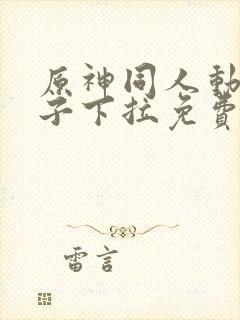 原神同人動
子下拉免費
雷言